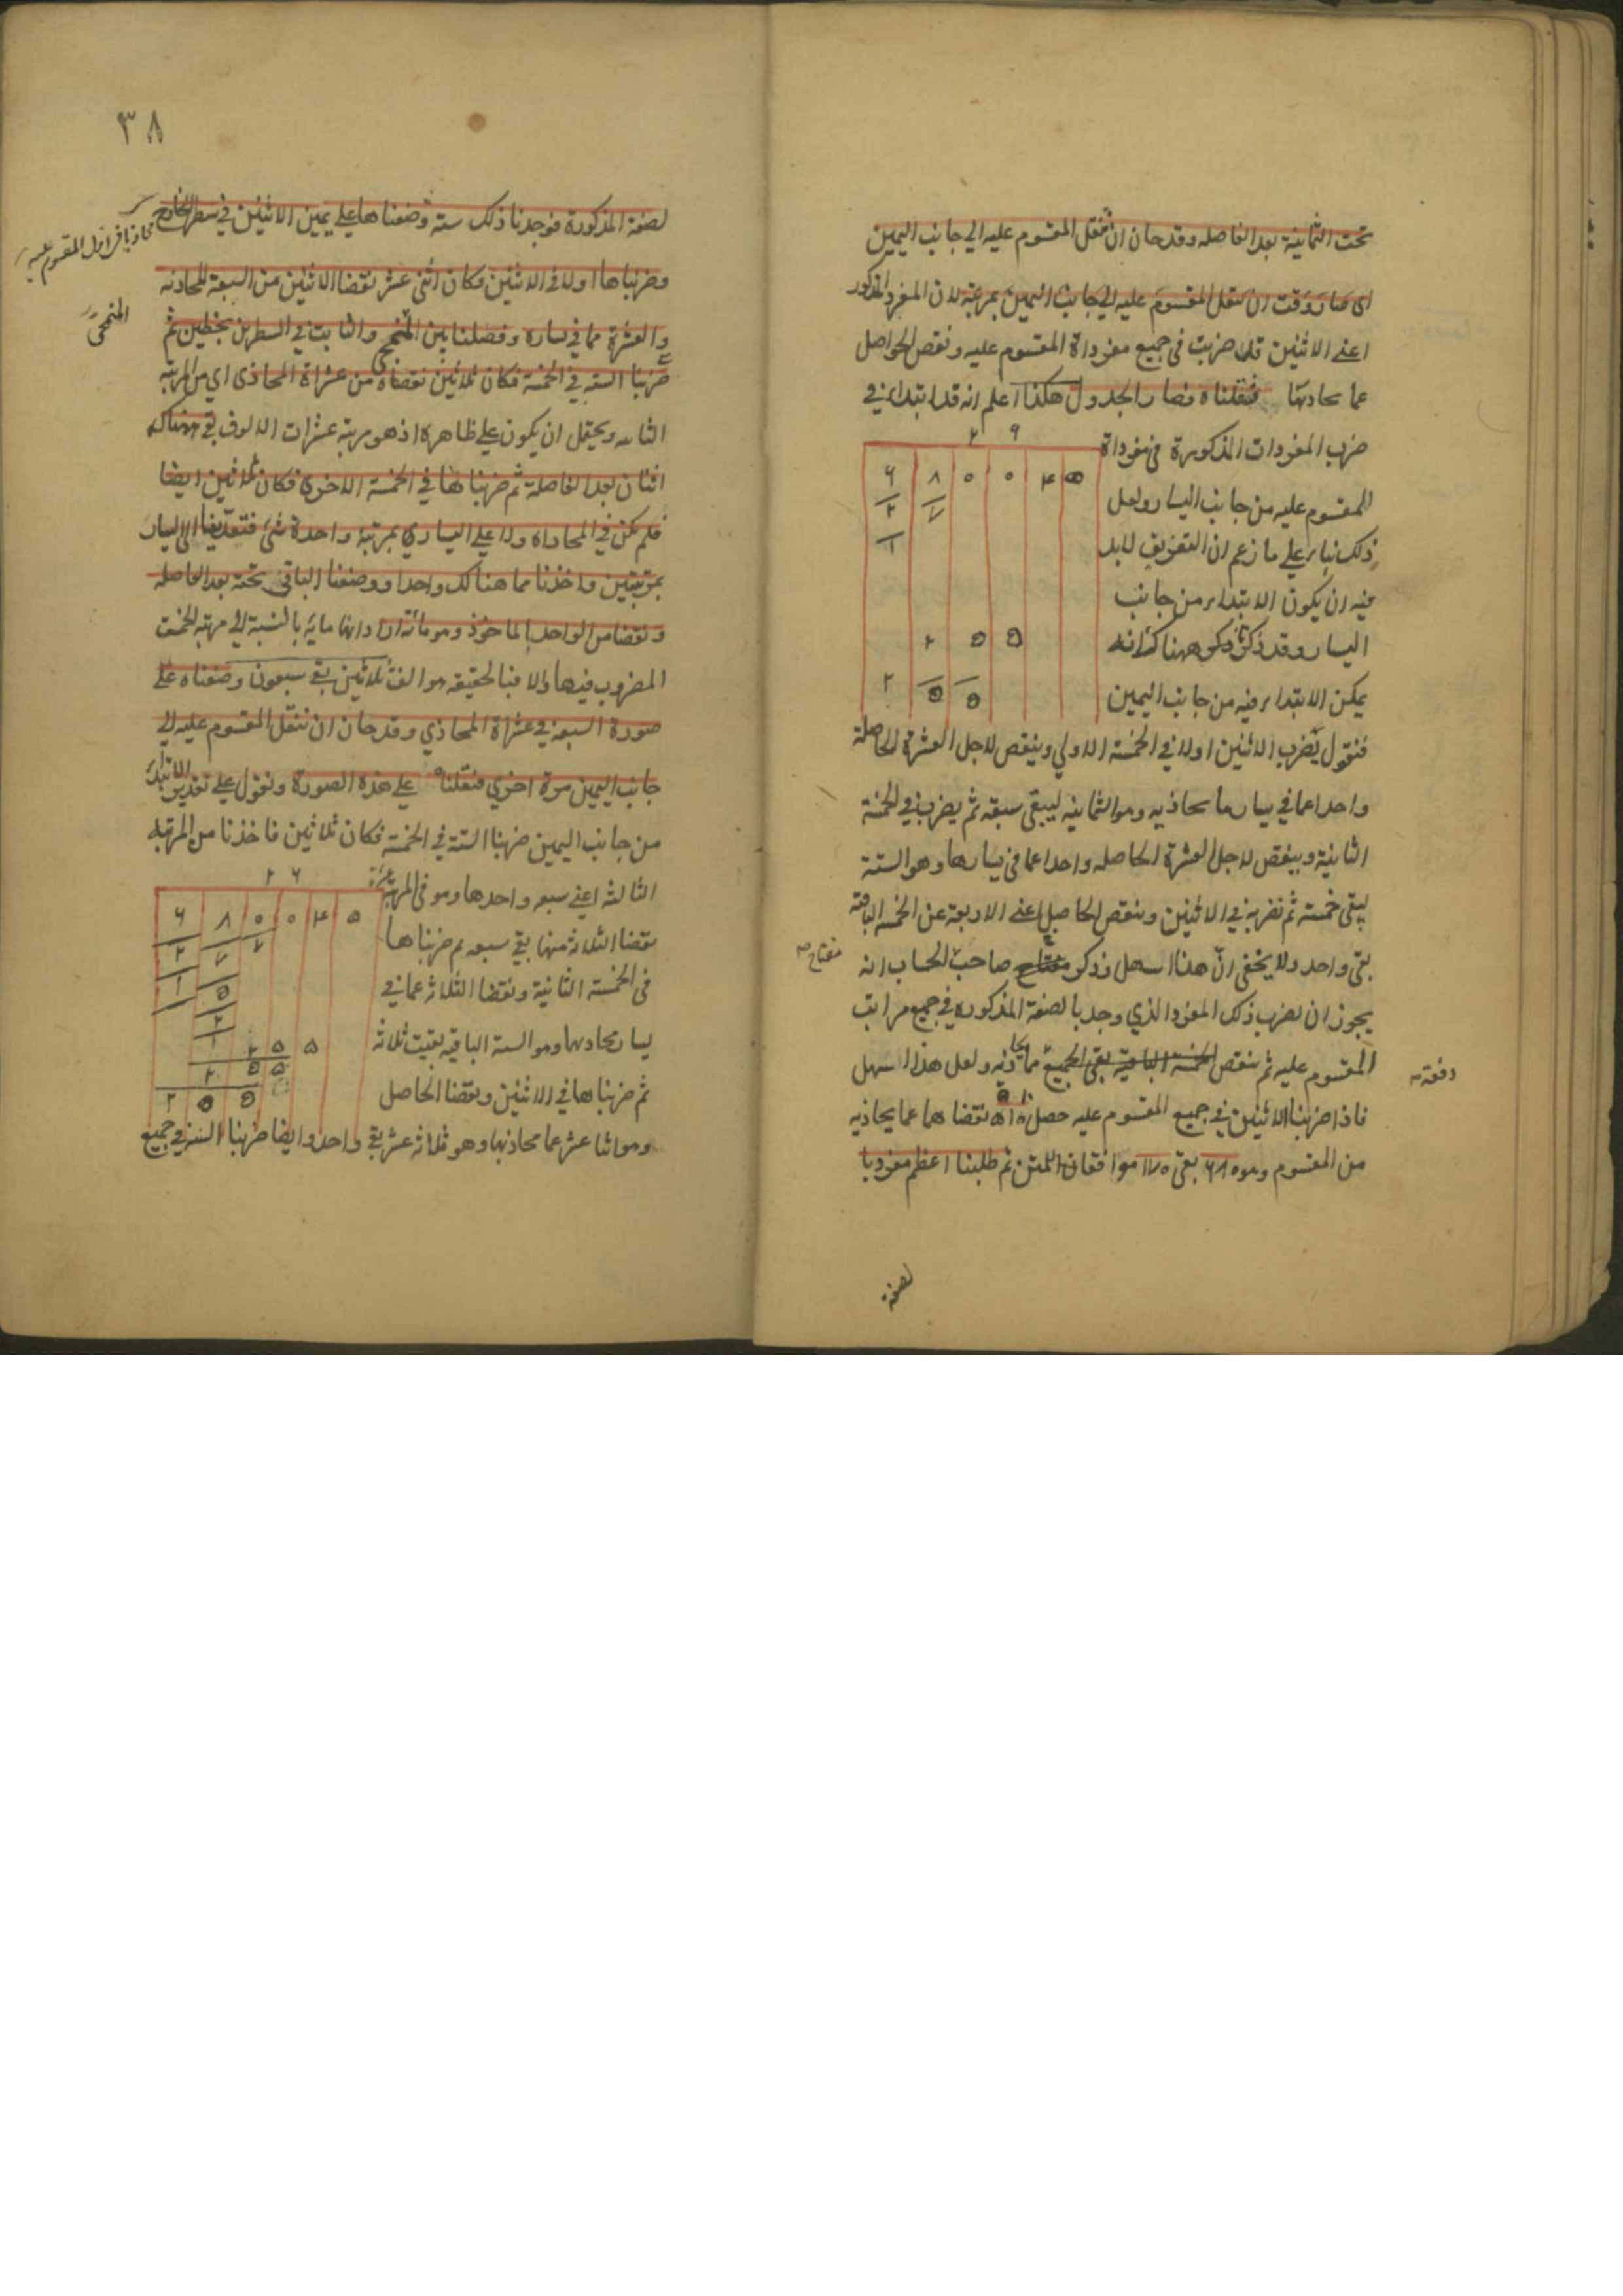 تحت الثمانية بعد الفاصله وقد حان ان ننقل المقسوم عليه الي جانب اليمين
اى صار وقت ان ننقل المقسوم عليه الي جانب اليمين بمرتبة لان المفرد المذكور
اعنى الاثنين قد ضربت فى جميع مفرداة المقسوم عليه ونقص الحواصل
عما يحاذيها فنقلناه فصار الجدول هكذا اعلم انه قد ابتداء في
ضرب المفردات المذكورة فى مفرداة
المقسوم عليه من جانب اليسار ولعل
ذلك بناء على ما زعم ان التفريق لابد
فيه ان يكون الابتداء من جانب
اليسار وقد ذكر ههنا كانه
يمكن الابتداء فيه من جانب اليمين
٢ ٩
٦ ٨ ٠ ٠ ٤ ٥
٢ ٧
١
٢ ٥ ٥
٢ ٥ ٥
فنقول يضرب الاثنين اولا في الخمسة الاولي وينقص لاجل العشرة الحاصلة
واحدا عما في يسار ما يحاذيه وهو الثمانيه ليبقى سبعة ثم يضرب في الخمسة
الثانية وينقص لاجل العشرة الحاصله واحدا عما فى يسارها وهو الستة
ليبقى خمسة ثم نضربه في الاثنين وينقص الحاصل اعنى الاربعة عن الخمسة الباقية
بقى واحد ولا يخفى ان هذا اسهل وذكر مفتاح صاحب الحساب انه
مفتاح صح
يجوز ان يضرب ذلك المفرد الذي وجد بالصفة المذكوره في جميع مراتب
المقسوم عليه ثم ينقص الخمسة الباقية بقى الجميع مما يحاذيه ولعل هذا اسهل
دفعة صح
فاذا ضربنا الاثنين في جميع المقسوم عليه حصل ٥١٠ نقصناها عما يحاذيه
من المقسوم وهو ٦٨٠ بقى ١٧٠ موافقا للمتن ثم طلبنا اعظم مفرد با
لصفة
٣٨
لصفة المذكورة فوجدنا ذلك ستة وضعناها علي يمين الاثنين في سطر الخارج
محاذيا لاول المقسوم عليه
وضربناها اولا في الاثنين فكان اثنى عشر نقصنا الاثنين من السبعة المحاذية
والعشرة مما في يساره وفصلنا بين المنمحي والثابت في السطرين بخطين ثم
المنمحي
ضربنا الستة في الخمسة فكان ثلاثين نقصناه من عشراة المحاذى اي من المرتبة
الثانيه ويحتمل ان يكون علي ظاهره اذ هو مرتبة عشرات الالوف بقى هناك
اثنان بعد الفاصلة ثم ضربناها في الخمسة الاخرى فكان ثلاثين ايضا
فلم يكن في المحاذاه ولا علي اليسارى بمرتبة واحدة شئ فتعدينا الى اليسار
بمرتبتين واخذنا مما هنالك واحدا ووضعنا الباقى تحته بعد الفاصله
ونقصنا من الواحد الماخوذ وهو مائة اذا دانها مايه بالنسبة الي مرتبة الخمسة
المضروب فيها والا فبالحقيقه هو الف ثلاثين بقى سبعون وضعناه علي
صورة السبعة في عشراة المحاذي وقد حان ان ننقل المقسوم عليه الي
جانب اليمين مرة اخرى فنقلناه علي هذه الصورة ونقول علي تقدير الابتداء
من جانب اليمين ضربنا الستة في الخمسة فكان ثلاثين فاخذنا من المرتبة
الثالثه اعنى سبعه واحدها وهو فى المرتبة عشرة
نقصنا الثلاثة منها بقى سبعه ثم ضربناها
فى الخمسة الثانية ونقصنا الثلاثة عما في
يسار محاذيها وهو الستة الباقيه بقيت ثلاثة
ثم ضربناها في الاثنين ونقصنا الحاصل
٢ ٦
٦ ٨ ٠ ٠ ٤ ٥
٢ ٧ ٧
١ ٥
٢
١
٢ ٥ ٥
٢ ٥ ٥
٢ ٥ ٥
وهو اثنا عشر عما محاذيها وهو ثلاثة عشر بقى واحد وايضا ضربنا الستة في جميع